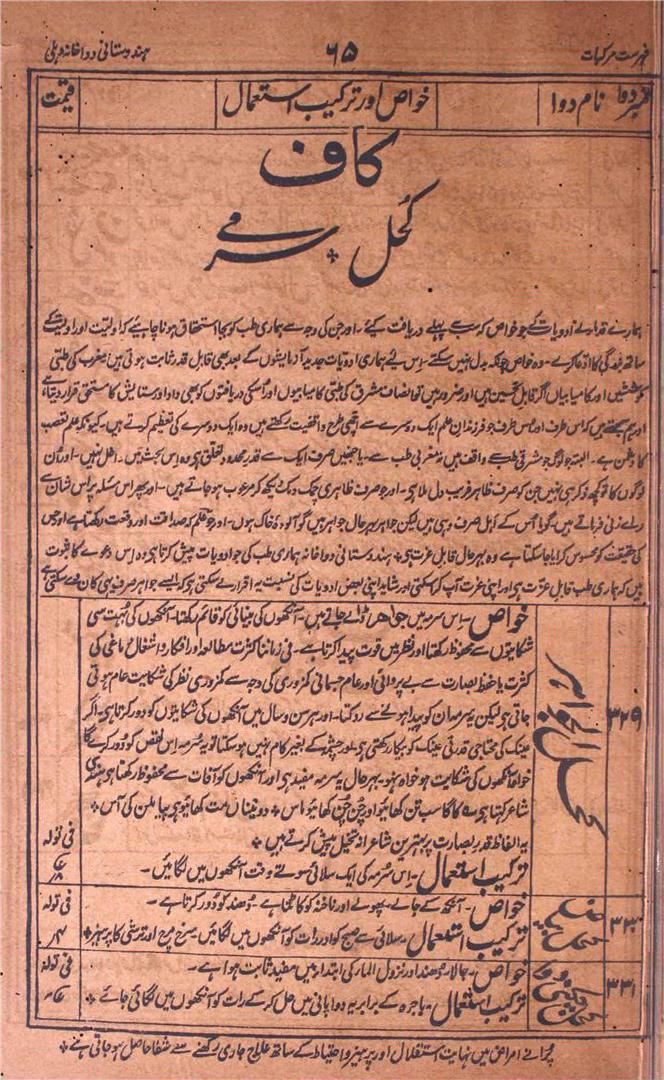 فہرست مرکبات ۶۵ ہندوستانی دواخانہ دہلی
نمبر دوا نام دوا خواص اور ترکیب استعمال قیمت
کاف
کُحل ٭ سرمے
ہمارے قدما نے ادویات کے جو خواص کہ سب سے پہلے دریافت کیئے۔ اور جن کی وجہ سے ہماری طب کو بجا استحقاق ہونا چاہیئے کہ اولیت اور اولویت کے
ساتھ زندگی کا ادعا کرے۔ وہ خواص چونکہ بدل نہیں سکتے۔ اِس لیے ہماری ادویات جدید آزمایشوں کے بعد بھی قابل قدر ثابت ہوتی ہیں مغرب کی طبّی
کوششیں اور کامیابیاں اگر قابل تحسین ہیں اور ضرور ہیں تو انصاف مشرق کی طبّی کامیابیوں اور اُسکی دریافتوں کو بھی داد اور ستایش کا مستحق قرار دیتا ہے
اور ہم سمجھتے ہیں کہ اس طرف اور اُس طرف جو فرزندانِ علم ایک دوسرے سے اچھی طرح واقفیت رکھتے ہیں وہ ایک دوسرے کی تعظیم کرتے ہیں۔ کیونکہ علم تعصب
کا دشمن ہے۔ البتہ جو لوگ جو مشرقی طب سے واقف ہیں نہ مغربی طب سے۔ یا جنھیں صرف ایک سے قدرِ محدود تعلق ہی وہ اِس بحث میں۔ اھل نہیں۔ اور اُن
لوگوں کا تو کچھ ذکر ہی نہیں جن کو صرف ظاہر فریب دل ملا ہی۔ اور جو صرف ظاہری چمک دمک دیکھ کر مرعوب ہو جاتے ہیں۔ اور پھر اس مسئلہ پر اس شان سے
راے زنی فرماتے ہیں۔ گویا اُس کے اہل صرف وہی ہیں لیکن جواہر بہر حال جواہر ہیں گو آلودۂ خاک ہوں۔ اور جو علم کہ صداقت اور وقعت رکھتا ہے اور جس
کی حقیقت کو محسوس کرایا جا سکتا ہے وہ بہر حال قابل عزت ہی ٭ ہندوستانی دواخانہ ہماری طب کی جو ادویات پیش کرتا ہی وہ اِس دعوے کا ثبوت
ہیں کہ ہماری طب قابل عزت ہی اور اپنی عزت آپ کر سکتی اور شاید اپنی بعض ادویات کی نسبت یہ اقرار لے سکتی ہو کہ ایسے جواہر صرف یہی کان دے سکتی ہے
خواص۔ اس سرمہ میں جواھر ڈالے جاتے ہیں۔ آنکھوں کی بینائی کو قائم رکھتا۔ آنکھوں کی بہت سی
شکایتوں سے محفوظ رکھتا اور نظر میں قوت پیدا کرتا ہے۔ فی زماننا کثرت مطالعہ اور افکار و اشغال دماغی کی
کثرت یا حفظ بصارت سے بے پروائی اور عام جسمانی کمزوری کی وجہ سے کمزوری نظر کی شکایت عام ہوتی
جاتی ہی لیکن یہ سرمہ ان کو پیدا ہونے سے روکتا۔ اور ہر سن و سال میں آنکھوں کی شکایتوں کو دور کرتا ہی۔ اگر
۳۲۹
عینک کی محتاجی قدرتی عینک کو بیکار رکھتی ہی اور چشمہ کے بغیر کام نہیں ہو سکتا تو یہ سرمہ اِس نقص کو دُور کرے گا
خواہ آنکھوں کی شکایت ہو خواہ نہو۔ بہر حال یہ سرمہ مفید ہی اور آنکھوں کو آفات سے محفوظ رکھتا ہی ہندی
شاعر کہتا ہی ے کاگا سب تن کھائیو اور چُن چُن کھائیو ماس ٭ دو نیناں مت کھائیو ہی پیا ملن کی آس ٭
یہ الفاظ قدر بصارت پر بہترین شاعرانہ تخیل پیش کرتے ہیں ٭
ترکیب استعمال۔ اس سُرمہ کی ایک سلائی سوتے وقت آنکھوں میں لگائیں۔ فی تولہ
۳۳۰ خواص۔ آنکھ کے جالے۔ پھولے اور ناخنہ کو کاٹتا ہے۔ دُھند کو دُور کرتا ہے۔ فی تولہ
ترکیب استعمال۔ سلائی سے صبح کو اور رات کو آنکھوں میں لگائیں۔ سرخ مرچ اور ترشی کا پرہیز ٭
۳۳۱ خواص۔ جالا۔ دُھند اور نزول الماء کی ابتداء میں مفید ثابت ہوا ہے۔ فی تولہ
ترکیب استعمال۔ باجرہ کے برابر یہ دوا پانی میں حل کر کے رات کو آنکھوں میں لگائی جائے ٭
پُرانے امراض میں نہایت استقلال اور پرہیز و احتیاط کے ساتھ علاج جاری رکھنے سے شفا حاصل ہو جاتی ہے ٭